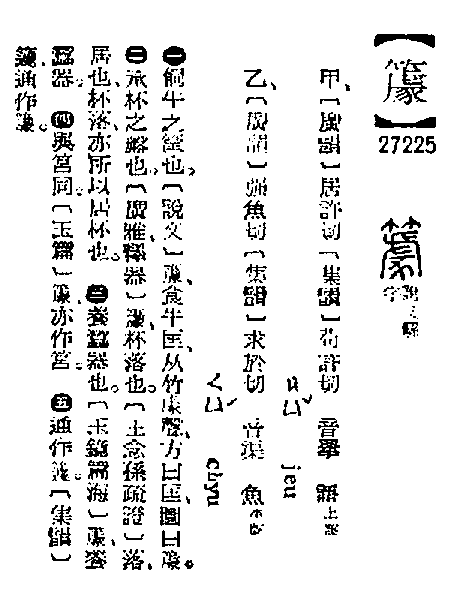 【𥴧】
27225
說文解字
甲、〔廣韻〕居許切〔集韻〕苟許切 音舉 語上聲
ㄐㄩˇ jeu
乙、〔廣韻〕強魚切〔集韻〕求於切 音渠 魚平聲
ㄑㄩˊ chyu
㊀飼牛之筐也。〔說文〕𥴧、食牛匡、从竹豦聲、方曰匡、圜曰𥴧。
㊁承杯之器也。〔廣雅、釋器〕𥴧、杯落也。〔王念孫疏證〕落、
居也、杯落、亦所以居杯也。㊂養蠶器也。〔篇海〕𥴧、養
蠶器。㊃與筥同。〔玉篇〕𥴧、亦作筥。㊄通作籧。〔集韻〕
𥴧、通作籧。